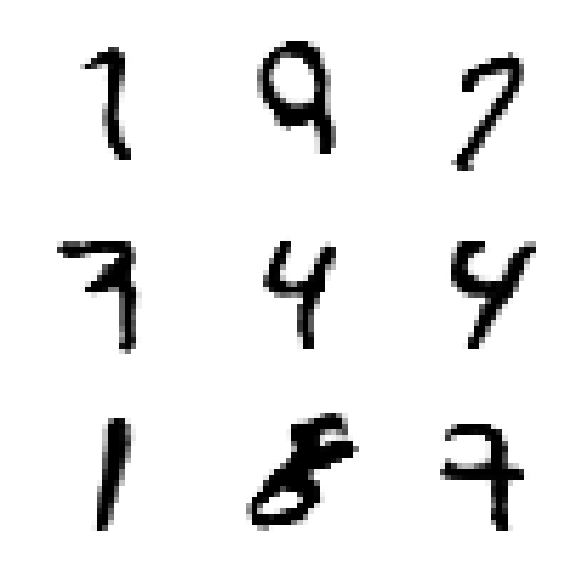 1 9 7
7 4 4
1 8 7